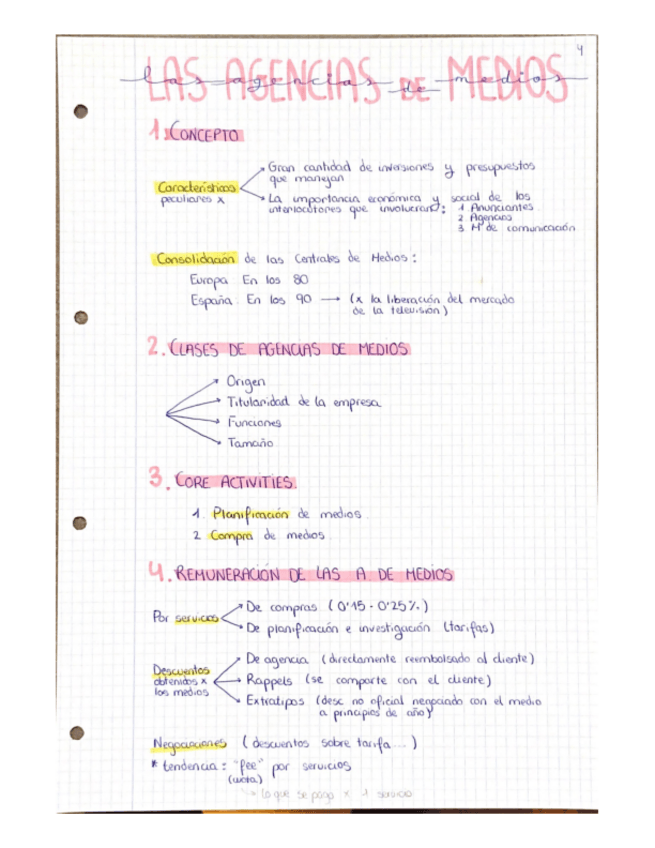 4
LAS AGENCIAS DE MEDIOS
las agencias de medios
1. CONCEPTO
Características peculiares x
Gran cantidad de inversiones y presupuestos
que manejan
La importancia económica y social de los
interlocutores que involucran: 1 Anunciantes
2 Agencias
3 M de comunicación
Consolidación de las Centrales de Medios:
Europa En los 80
España. En los 90 → (x la liberación del mercado
de la televisión)
2. CLASES DE AGENCIAS DE MEDIOS
Origen
Titularidad de la empresa
Funciones
Tamaño
3. CORE ACTIVITIES.
1. Planificación de medios
2 Compra de medios
4. REMUNERACIÓN DE LAS A DE MEDIOS
Por servicios
De compras (0'15 - 0'25%)
De planificación e investigación (tarifas)
Descuentos
obtenidos x
los medios
De agencia (directamente reembolsado al cliente)
Rappels (se comparte con el cliente)
Extratipos (desc no oficial negociado con el medio
a principios de año)
Negociaciones (descuentos sobre tarifa...)
* tendencia: "fee" por servicios
(cuota)
→ lo que se paga x 1 servicio